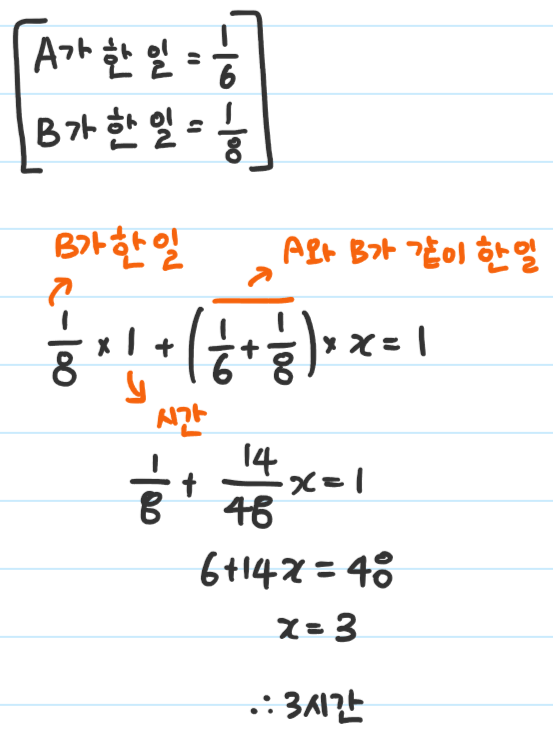 A가 한 일 = 1/6
B가 한 일 = 1/8
B가 한 일
A와 B가 같이 한 일
1/8 × 1 + (1/6 + 1/8) × x = 1
시간
1/8 + 14/48 x = 1
6+14x = 48
x = 3
∴ 3시간